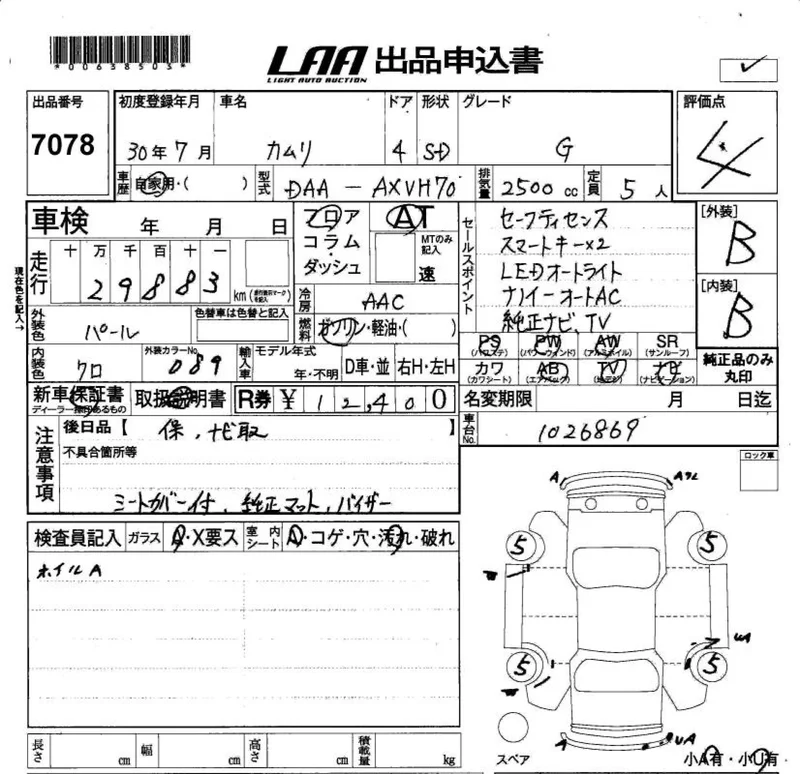 *00638503*
LAA 出品申込書
LIGHT AUTO AUCTION
出品番号
7078
初度登録年月 車名 ドア 形状 グレード
30年 7月 カムリ 4 SD G
評価点
4
車歴 自家用・( ) 型式 DAA - AXVH70 排気量 2500cc 定員 5人
車検 年 月 日
フロア
コラム
・
ダッシュ
AT
MTのみ記入
速
セールスポイント
セーフティセンス
スマートキー×2
LEDオートライト
ナノイーオートAC
純正ナビ、TV
[外装]
B
[内装]
B
現在色を記入→
走行 十 万 千 百 十 一
2 9 8 8 3 km
冷房 AAC
外装色 パール 色替車は色替と記入
燃料 ガソリン・軽油・( )
内装色 クロ 外装カラーNo. 089
輸入車 モデル年式 年・不明 D車・並 右H・左H
PS PW AW SR
(パワステ) (パワーウィンド) (アルミホイル) (サンルーフ)
カワ AB TV ナビ
(カワシート) (エアバッグ) (ナビゲーション)
純正品のみ丸印
新車保証書 取扱説明書 R券 ¥ 1 2,4 0 0
名変期限 月 日迄
車台No. 1026869
注意事項
後日品【 保、ナビ取 】
不具合箇所等
シートカバー付、純正マット、バイザー
ロック車
検査員記入 ガラス A・X要ス 室内シート A・コゲ・穴・汚れ・破れ
ホイルA
A
5 5
W
UA
5 5
W
A UA
スペア
小A有・小U有
長さ cm 幅 cm 高さ cm 積載量 kg